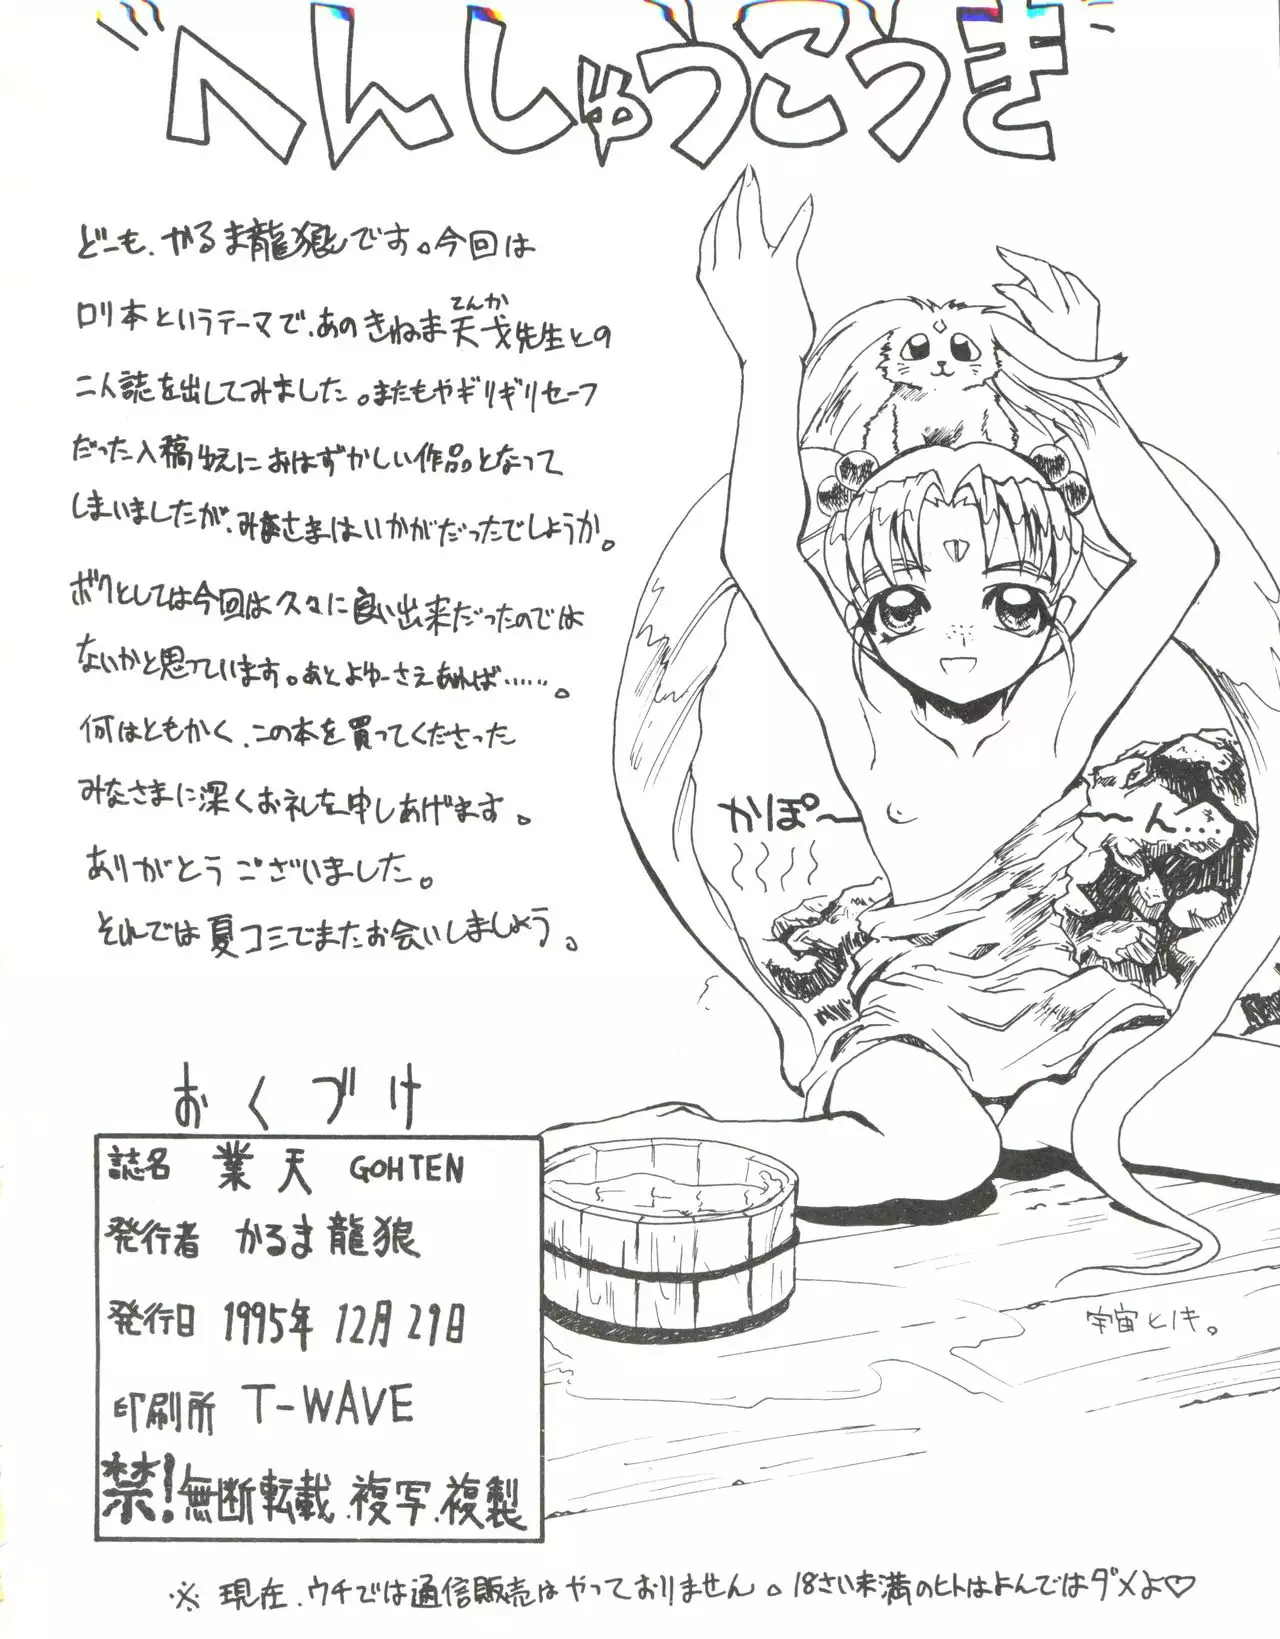 "へんしゅうこうき"
どーも、かるま龍狼です。今回は
ロリ本というテーマで、あのきねま天戈先生との
てんか
二人誌を出してみました。またもやギリギリセーフ
だった入稿ゆえにおはずかしい作品となって
しまいましたが、みなさまはいかがだったでしょうか。
ボクとしては今回は久々に良い出来だったのでは
ないかと思っています。あとよゆーさえあれば……。
何はともかく、この本を買ってくださった
みなさまに深くお礼を申しあげます。
ありがとうございました。
それでは夏コミでまたお会いしましょう。
かぽ〜
〜ん…
おくづけ
誌名 業天 GOHTEN
発行者 かるま龍狼
発行日 1995年12月29日
印刷所 T-WAVE
禁!無断転載.複写.複製
宇宙ヒノキ。
※現在、ウチでは通信販売はやっておりません。18さい未満のヒトはよんではダメよ♡